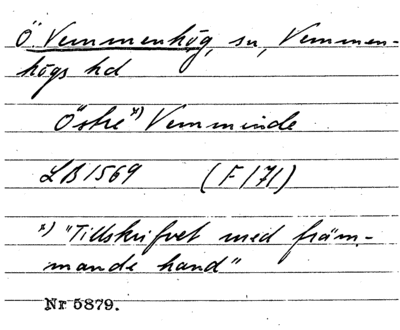 Ö. Vemmenhög, sn, Vemmen-
högs hd
Östre x) Vemminde
LB 1569 (F 171)
x) "Tillskrifvet med främ-
mande hand"
Nr 5879.